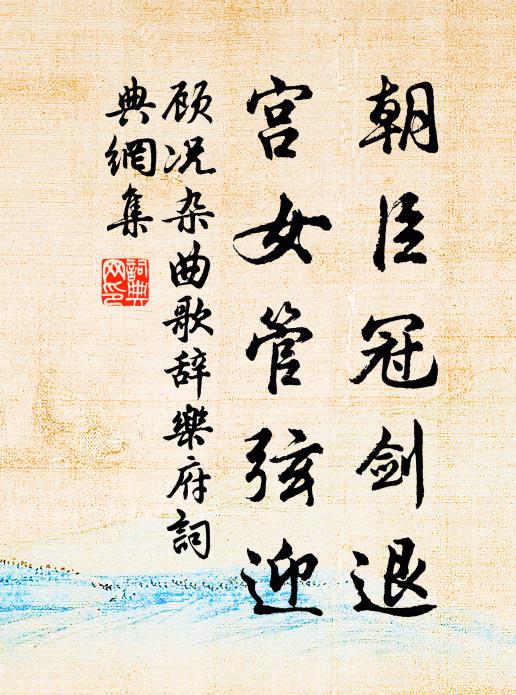 朝臣冠剑退
宫女管弦迎
顾况杂曲歌辞樂府詞
典網集
詞典
网印